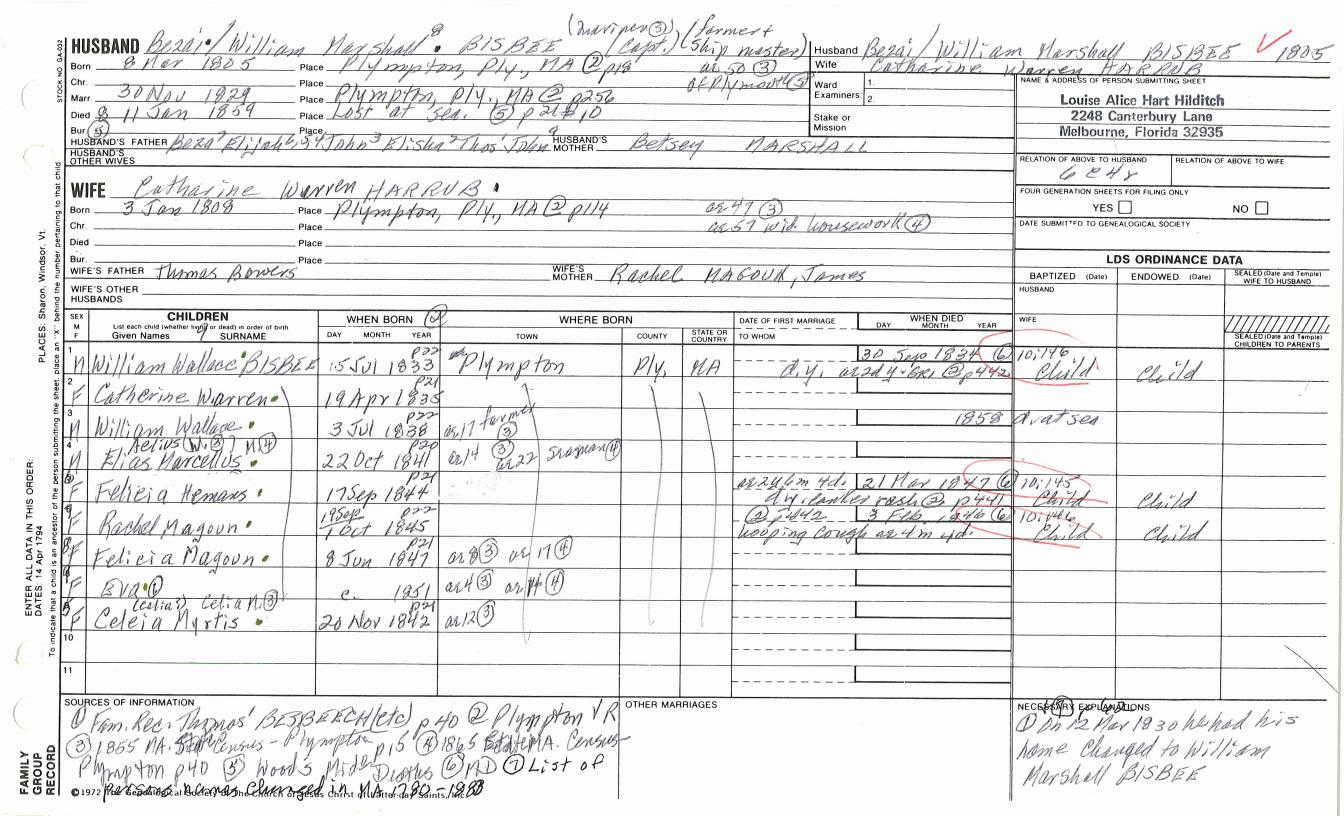 (mariner ③) (former +
HUSBAND Beza⁷/William Marshall⁸ BISBEE (Capt.) Ship master)
Born 8 Mar 1805 Place Plympton, Ply, MA ② p18 ae 50 ③
Chr. Place of Plymouth ⑤
Marr 30 Nov 1829 Place Plympton, Ply., MA ② p256
Died 11 Jan 1859 Place Lost at sea. ⑤
Bur ⑤ Place
HUSBAND'S FATHER Beza⁷ Elijah⁶,⁵,⁴ John³ Elisha² Thos¹ John HUSBAND'S MOTHER Betsey MARSHALL
HUSBAND'S OTHER WIVES
Husband Beza/William Marshall BISBEE ✓ 1805
Wife Catharine Warren HARRUB
Ward Examiners: 1.
2.
Stake or Mission
NAME & ADDRESS OF PERSON SUBMITTING SHEET
Louise Alice Hart Hilditch
2248 Canterbury Lane
Melbourne, Florida 32935
RELATION OF ABOVE TO HUSBAND RELATION OF ABOVE TO WIFE
6C4r
FOUR GENERATION SHEETS FOR FILING ONLY
YES NO
DATE SUBMITTED TO GENEALOGICAL SOCIETY
WIFE Catharine Warren HARRUB
Born 3 Jan 1808 Place Plympton, Ply, MA ② p114 ae 47 ③
Chr. Place ae 57 wid. housework ④
Died Place
Bur. Place
WIFE'S FATHER Thomas Bowers WIFE'S MOTHER Rachel MAGOUN, James
WIFE'S OTHER HUSBANDS
LDS ORDINANCE DATA
BAPTIZED (Date) ENDOWED (Date) SEALED (Date and Temple) WIFE TO HUSBAND
HUSBAND
WIFE
SEALED (Date and Temple) CHILDREN TO PARENTS
SEX M F CHILDREN WHEN BORN ② WHERE BORN DATE OF FIRST MARRIAGE WHEN DIED
List each child (whether living or dead) in order of birth
Given Names 9 SURNAME DAY MONTH YEAR TOWN COUNTY STATE OR COUNTRY TO WHOM DAY MONTH YEAR
1 M William Wallace BISBEE 15 Jul 1833 p22 Plympton Ply. MA d.y. ae 2d y. GRI ② p442 30 Sep 1834 ⑥ 10:146 Child Child
2 F Catherine Warren 19 Apr 1835 p21
3 M William Wallace 3 Jul 1838 p22 ae 17 farmer ③ 1858 d. at sea
4 M Aelius (W. ③) M ④ Elias Marcellus 22 Oct 1841 p20 ae 14 ③ ae 22 seaman ④
F Felicia Hemans 17 Sep 1844 p21 ae 2y 6m 4d. d.y. canker rash ② p441 21 Mar 1847 ⑥ 10:145 Child Child
F Rachel Magoun 19 Sep/1 Oct 1845 p22 ② p442 3 Feb. 1846 ⑥ 10:146 hooping cough ae 4m 4d. Child Child
F Felicia Magoun 8 Jun 1847 p21 ae 8 ③ ae 17 ④
F Eva ① c. 1851 ae 4 ③ ae 14 ④
F (Celia?) Celia M. ③ Celeia Myrtis 20 Nov 1842 p21 ae 12 ③
10
11
SOURCES OF INFORMATION
① Fam. Rec. Thomas¹ BESBEECH (etc) p40 ② Plympton VR
③ 1855 MA. State Census - Plympton p15 ④ 1865 State MA. Census-
Plympton p40 ⑤ Wood's Midd Deaths ⑥ MD ⑦ List of
persons names changed in MA 1780-1883
OTHER MARRIAGES
NECESSARY EXPLANATIONS
① On 12 Mar 1830 he had his
name changed to William
Marshall BISBEE
©1972 The Genealogical Society of The Church of Jesus Christ of Latter-day Saints, Inc.
FAMILY GROUP RECORD
ENTER ALL DATA IN THIS ORDER:
DATES: 14 Apr 1794
PLACES: Sharon, Windsor, Vt.
To indicate that a child is an ancestor of the person submitting the sheet, place an "X" behind the number pertaining to that child
STOCK NO. GA-032